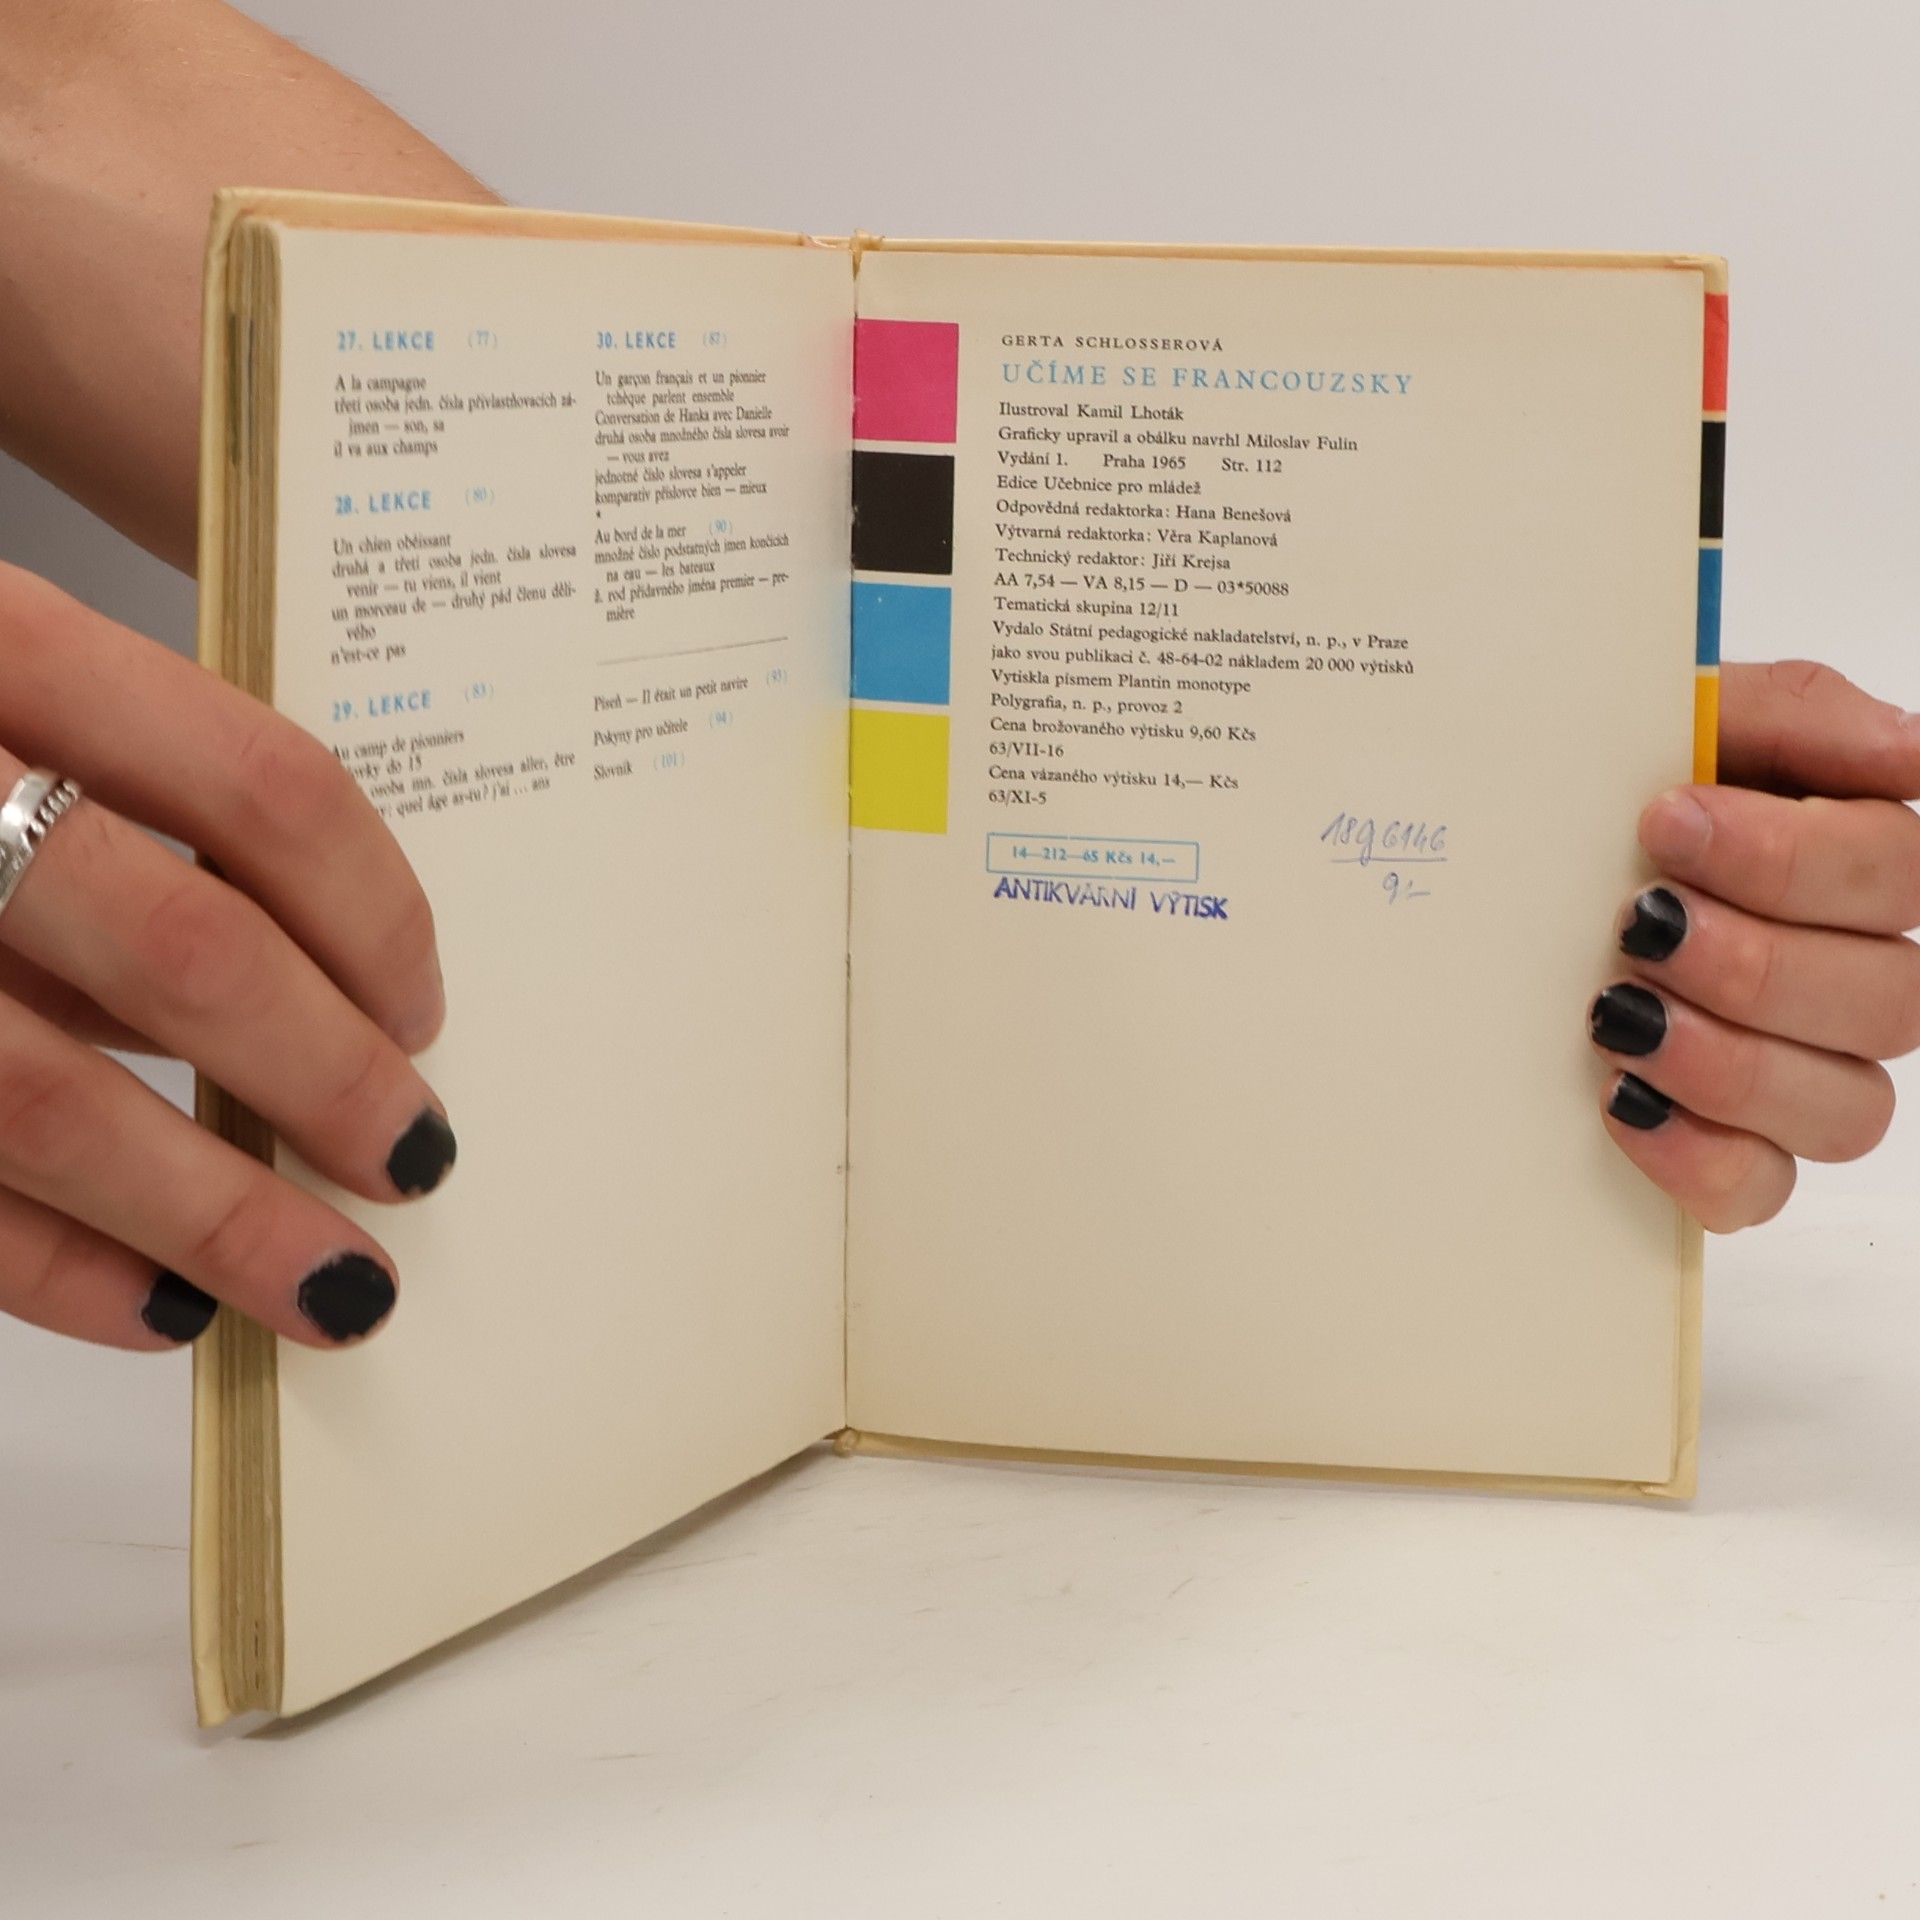 27. LEKCE (77)
A la campagne
třetí osoba jedn. čísla přivlastňovacích zá-
jmen — son, sa
il va aux champs
28. LEKCE (80)
Un chien obéissant
druhá a třetí osoba jedn. čísla slovesa
venir — tu viens, il vient
un morceau de — druhý pád členu děli-
vého
n'est-ce pas
29. LEKCE (83)
Au camp de pionniers
do 15
osoba mn. čísla slovesa aller, être
quel âge as-tu? j'ai ... ans
30. LEKCE (87)
Un garçon français et un pionnier
tchèque parlent ensemble
Conversation de Hanka avec Danielle
druhá osoba množného čísla slovesa avoir
— vous avez
jednotné číslo slovesa s'appeler
komparativ příslovce bien — mieux
*
Au bord de la mer (90)
množné číslo podstatných jmen končících
na eau — les bateaux
ž. rod přídavného jména premier — pre-
mière
Píseň — Il était un petit navire (93)
Pokyny pro učitele (94)
Slovník (101)
GERTA SCHLOSSEROVÁ
UČÍME SE FRANCOUZSKY
Ilustroval Kamil Lhoták
Graficky upravil a obálku navrhl Miloslav Fulín
Vydání 1. Praha 1965 Str. 112
Edice Učebnice pro mládež
Odpovědná redaktorka: Hana Benešová
Výtvarná redaktorka: Věra Kaplanová
Technický redaktor: Jiří Krejsa
AA 7,54 — VA 8,15 — D — 03*50088
Tematická skupina 12/11
Vydalo Státní pedagogické nakladatelství, n. p., v Praze
jako svou publikaci č. 48-64-02 nákladem 20 000 výtisků
Vytiskla písmem Plantin monotype
Polygrafia, n. p., provoz 2
Cena brožovaného výtisku 9,60 Kčs
63/VII-16
Cena vázaného výtisku 14,— Kčs
63/XI-5
14—212—65 Kčs 14,—
ANTIKVÁRNÍ VÝTISK
18g6146
9,-